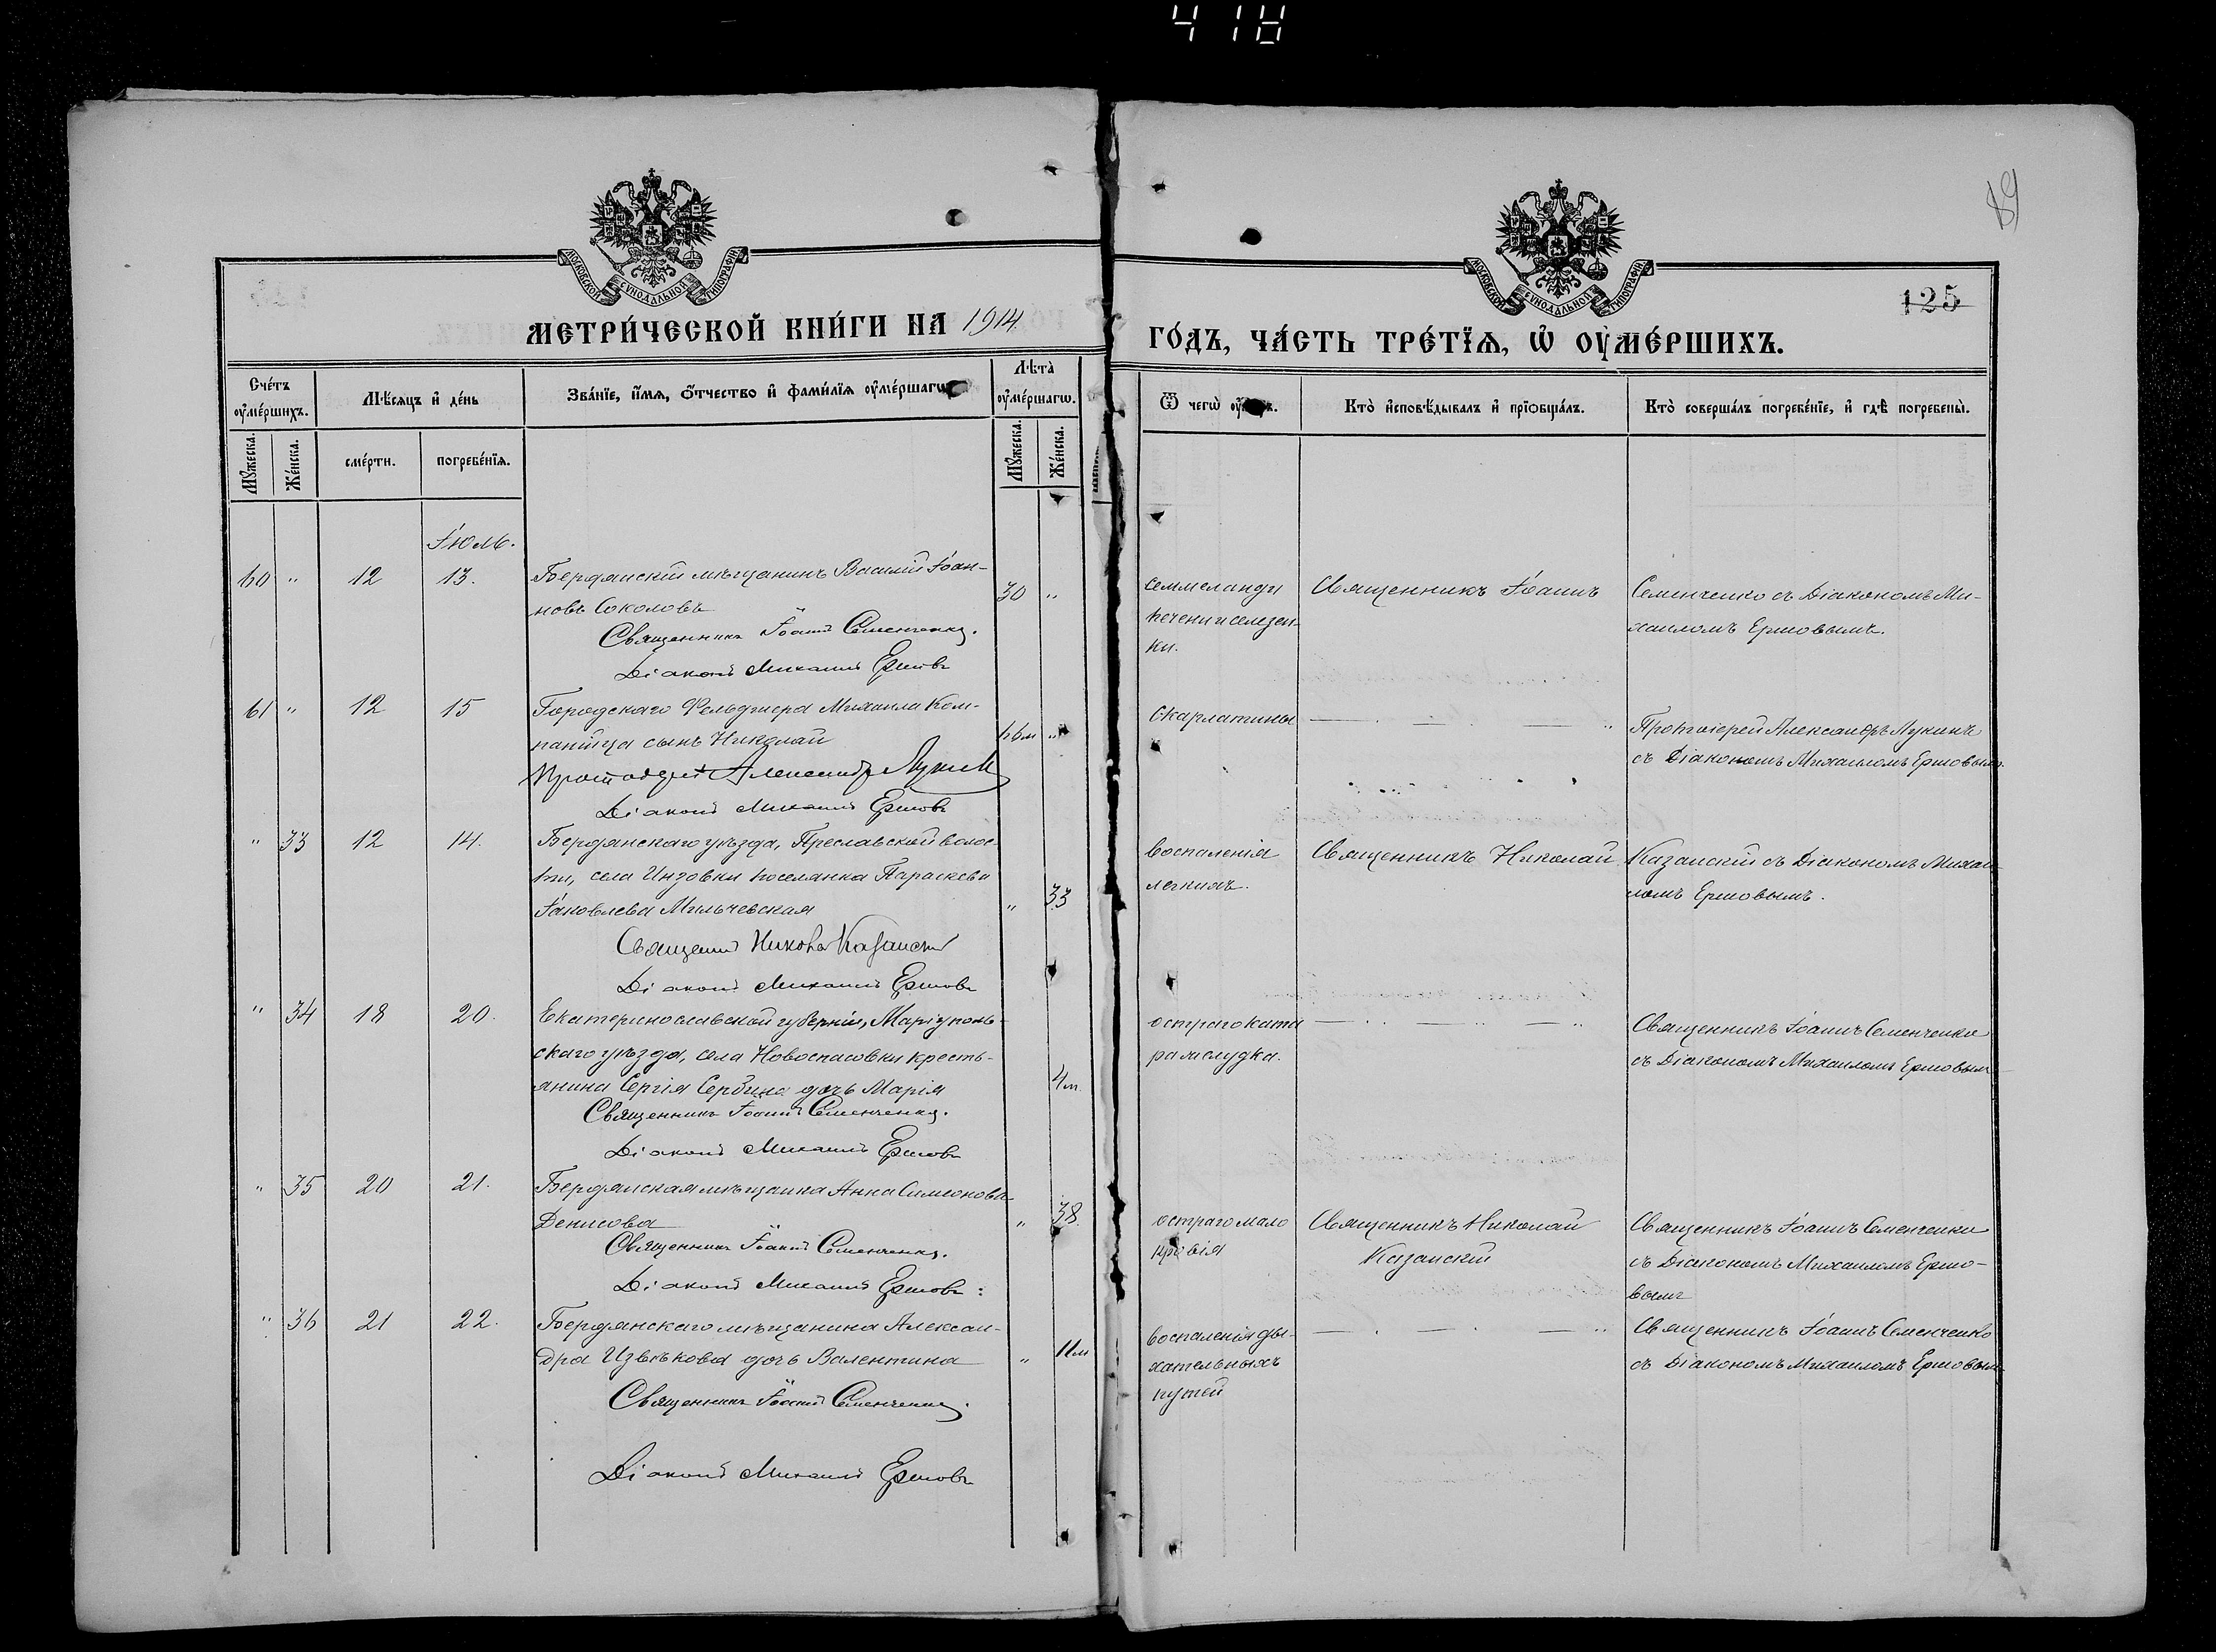 418
89
МОСКОВСКОЙ СУНОДАЛЬНОЙ ТИПОГРАФІИ
МОСКОВСКОЙ СУНОДАЛЬНОЙ ТИПОГРАФІИ
125
МЕТРИ́ЧЕСКОЙ КНИ́ГИ НА 1914
ГО́ДЪ, ЧА́СТЬ ТРЕ́ТЇѦ, Ѡ҆ ОУ҆МЕ́РШИХЪ.
Сче́тъ оу҆ме́ршихъ.
Мѣ́сяцъ и҆ де́нь
Зва́нїе, и҆́мѧ, о҆́тчество и҆ фами́лїѧ оу҆ме́ршагѡ
Лѣ́та̀ оу҆ме́ршагѡ.
Ѿ чегѡ̀
Кто̀ и҆сповѣ́дывалъ и҆ прїѡбща́лъ.
Кто̀ соверша́лъ погребе́нїе, и҆ гдѣ̀ погребены̀.
Мꙋ́жеска.
Же́нска.
сме́рти.
погребе́нїѧ.
Мꙋ́жеска.
Же́нска.
Іюль.
60 " 12 13. Бердянскій мѣщанинъ Василій Іоан-
новъ Соколовъ 30 "
Священникъ Іоаннъ Семенченко.
Діаконъ Михаилъ Ершовъ
печени и селезен-
ки.
Священникъ Іоаннъ
Семенченко съ Діакономъ Ми-
хаиломъ Ершовымъ.
61 " 12 15 Городскаго Фельдшера Михаила Ком-
панійца сынъ Николай "
Протоіерей Александр Лукин
Діаконъ Михаилъ Ершовъ
Скарлатины — · — · — "
Протоіерей Александръ Лукинъ
съ Діакономъ Михаиломъ Ершовым.
" 33 12 14. Бердянскаго уѣзда, Преславской волос-
ти, села Инзовки поселянка Параскева
Іаковлева Мильчевская " 33
Священн Никола Казански
Діаконъ Михаилъ Ершовъ
воспаленія
легкихъ.
Священникъ Николай
Казанскій съ Діакономъ Михаи-
ломъ Ершовымъ.
" 34 18 20. Екатеринославской губерніи, Маріуполь-
скаго уѣзда, села Новоспасовки кресть-
янина Сергія Сербина дочь Марія 4м.
Священникъ Іоаннъ Семенченко.
Діаконъ Михаилъ Ершовъ
остраго ката
ра желудка.
— · · — · · — "
Священникъ Іоаннъ Семенченко
съ Діакономъ Михаиломъ Ершовым
" 35 20 21. Бердянская мѣщанка Анна Симеонова
Денисова " 38.
Священникъ Іоаннъ Семенченко.
Діаконъ Михаилъ Ершовъ:
остраго мало
кровія
Священникъ Николай
Казанскій
Священникъ Іоаннъ Семенченко
съ Діакономъ Михаиломъ Ершо-
вымъ
" 36 21 22. Бердянскаго мѣщанина Алексан-
дра Извѣкова дочь Валентина " 11м
Священникъ Іоаннъ Семенченко.
Діаконъ Михаилъ Ершовъ
воспаленія ды-
хательныхъ
путей
— · — · — "
Священникъ Іоаннъ Семенченко
съ Діакономъ Михаиломъ Ершовым